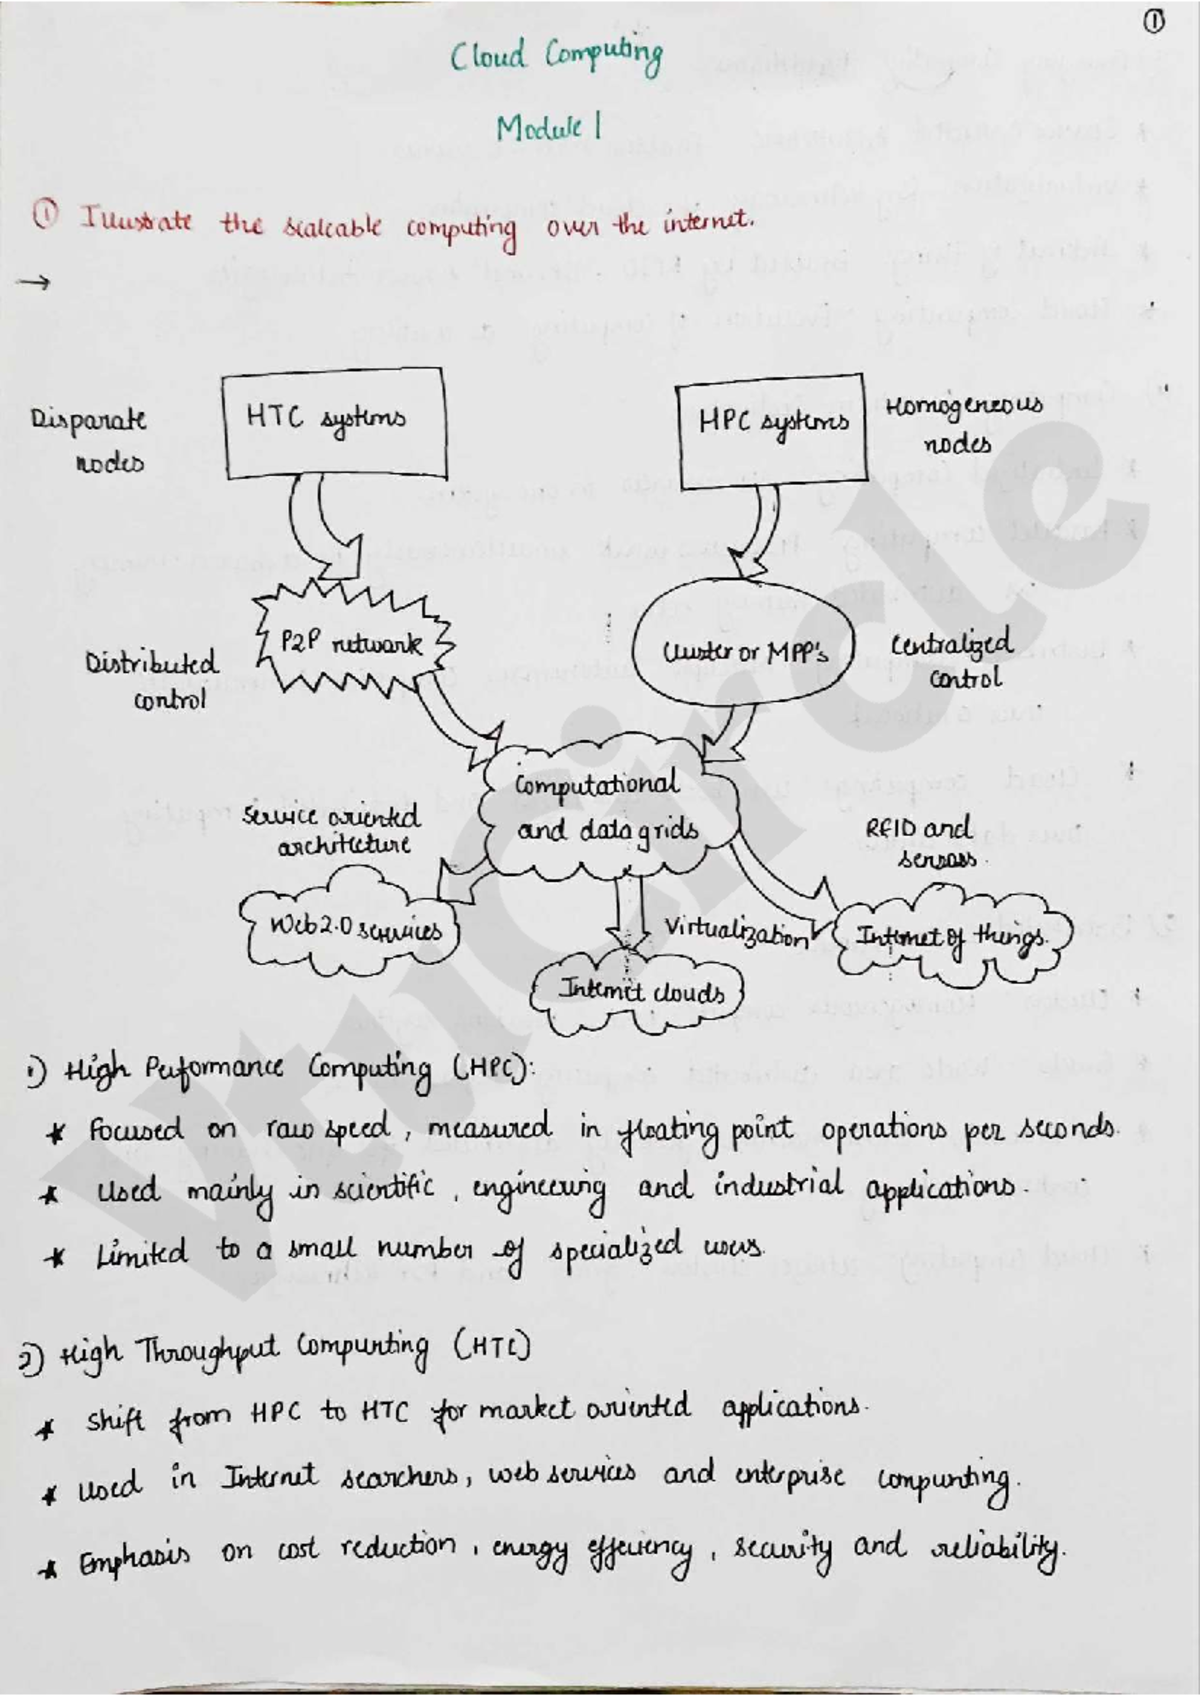 ①
Cloud Computing
Module 1
① Illustrate the scaleable computing over the internet.
→
Disparate nodes
HTC systems
HPC systems
Homogeneous nodes
Distributed control
P2P network
Cluster or MPP's
Centralized control
Computational and data grids
Service oriented architecture
RFID and sensors.
Web 2.0 services
Virtualization
Internet of things.
Internet clouds
1) High Performance Computing (HPC):
* Focused on raw speed, measured in floating point operations per seconds.
* Used mainly in scientific, engineering and industrial applications.
* Limited to a small number of specialized users.
2) High Throughput Compunting (HTC)
* Shift from HPC to HTC for market oriented applications.
* Used in Internet searchers, web services and enterprise compunting.
* Emphasis on cost reduction, energy effeciency, security and reliability.
VtuCircle